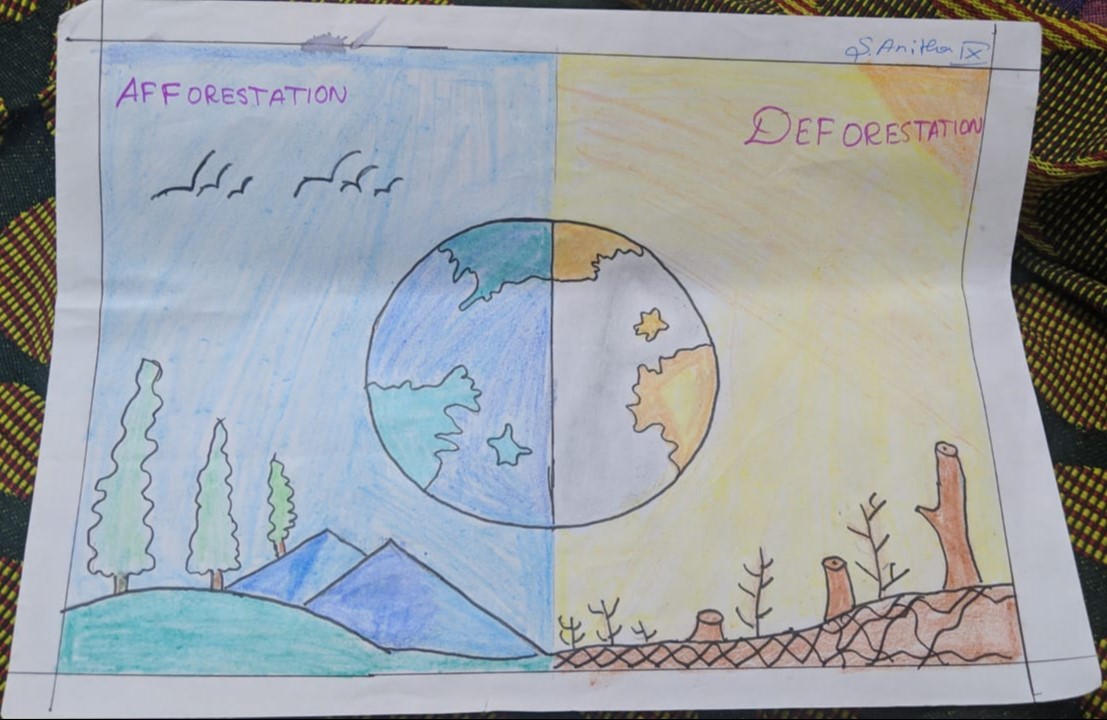 S. Anitha IX
AFFORESTATION
DEFORESTATION